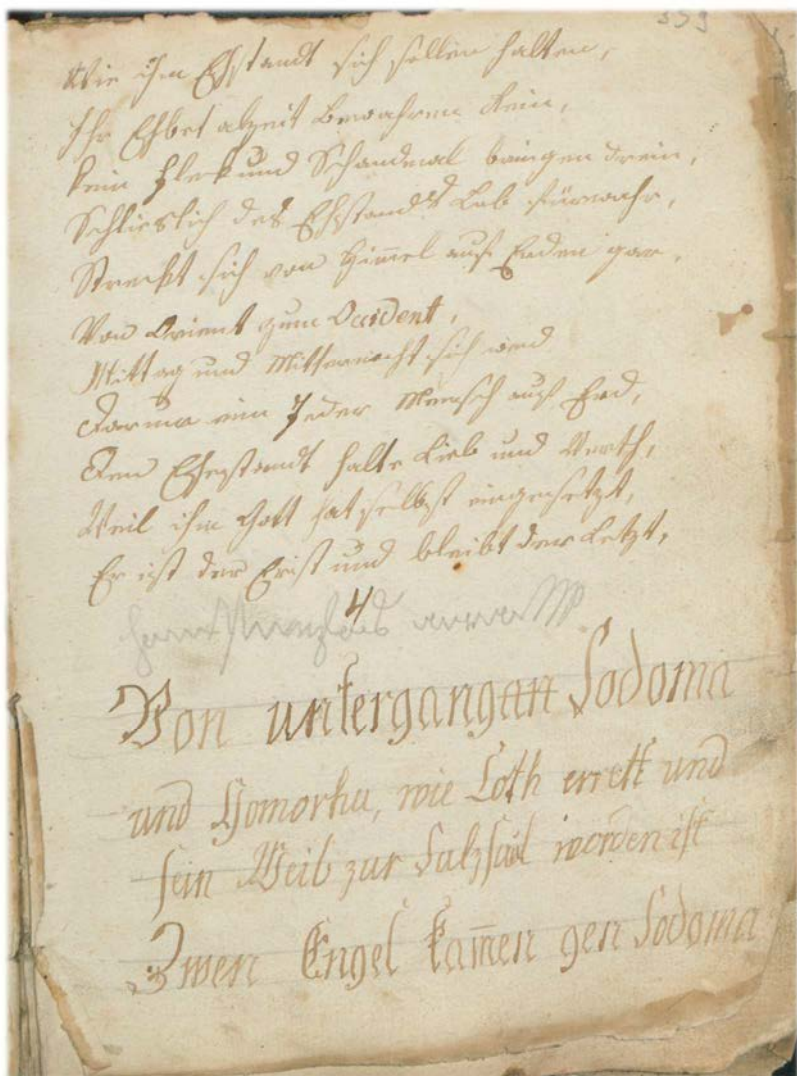 339
Wie ihm Ehstandt sich sollen halten,
Ihr Ehbet alzeit bewahren Rein,
kein Fleck und Schandmal bringen drein,
Schlieslich des Ehstands Lob fürwahr,
Streckt sich von Him̄el auf Erden gar,
Von Orient zum Occident,
Mittag und Mitternacht sich wend
Darum ein Jeder Mensch auf Erd,
Den Ehestandt halte Lieb und Werth,
Weil ihn Gott hat selbst eingesetzt,
Er ist der Erist und bleibt der Letzt,
4
Von untergangan Sodoma
und Gomorha, wie Loth errett und
sein Weib zur Salzsäul worden ist
Zwen Engel kam̄en gen Sodoma